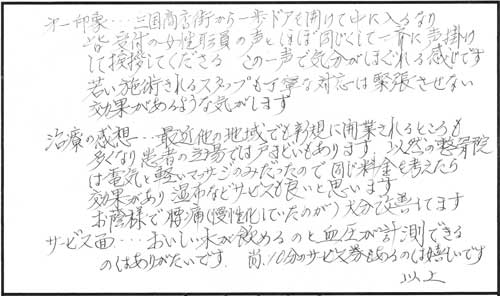 第一印象・・・三国商店街から一歩ドアを開けて中に入るなり
皆受付の女性職員の声とほぼ同じくして一斉に声掛け
して挨拶してくださる この一声で気分がほぐれる感じです
若い施術されるスタッフも丁寧な対応は緊張させない
効果があるような気がします
治療の感想・・・最近他の地域でも新規に開業されるところも
多くなり患者の立場では戸まどいもあります 以然の整骨院
は電気と軽いマッサージのみだったので同じ料金を考えたら
効果があり湿布などサービスも良いと思います
お蔭様で腰痛(慢性化していたのが)大分で改善してます
サービス面・・・おいしい水が飲めるのと血圧が計測できる
のはありがたいです。尚、10分のサービス券もあるのは嬉しいです
以上